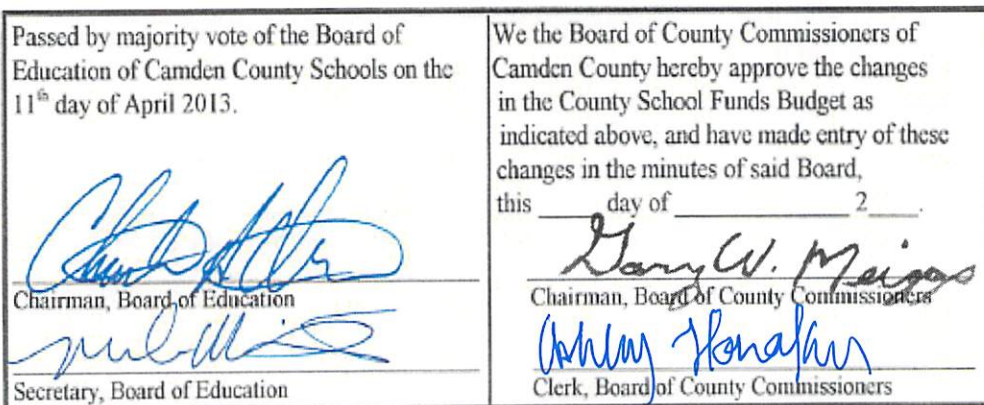 Passed by majority vote of the Board of
Education of Camden County Schools on the
11th day of April 2013.
Chairman, Board of Education
Secretary, Board of Education
We the Board of County Commissioners of
Camden County hereby approve the changes
in the County School Funds Budget as
indicated above, and have made entry of these
changes in the minutes of said Board,
this ____ day of ______________ 2____.
Gary W. Meiggs
Chairman, Board of County Commissioners
Ashley Honaker
Clerk, Board of County Commissioners